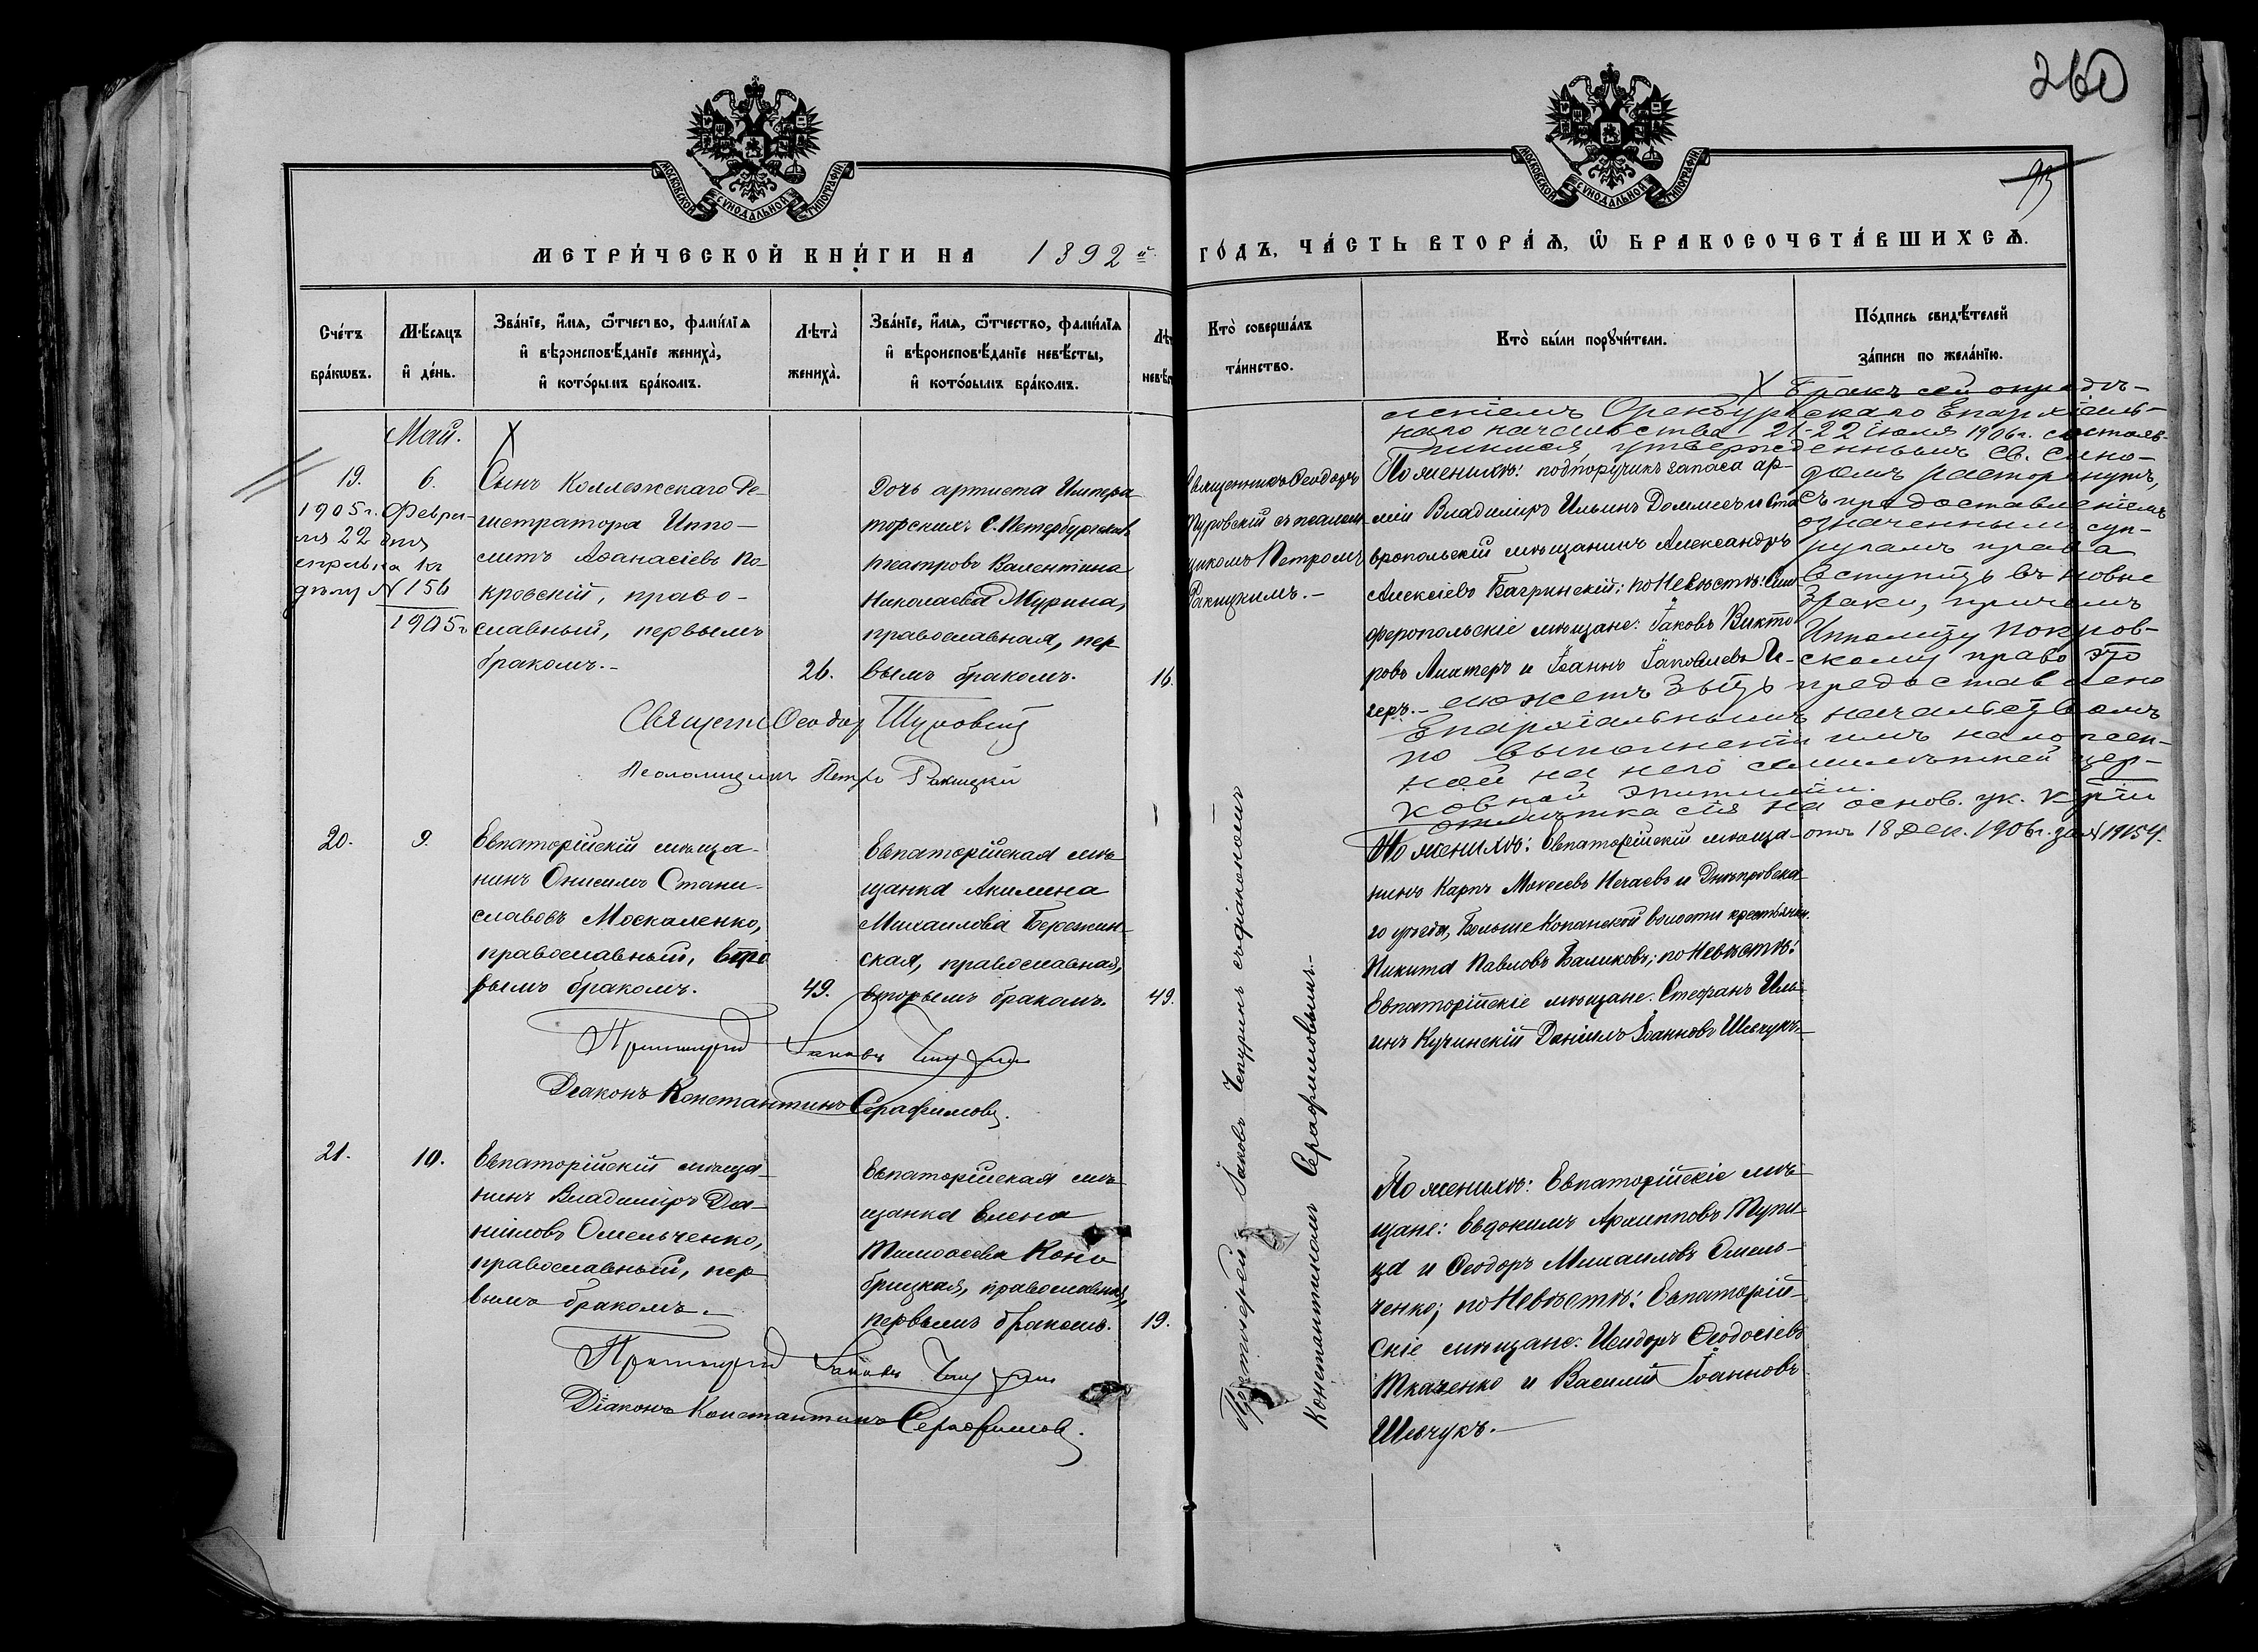 260
93
МОСКОВСКОЙ СѴНОДАЛЬНОЙ ТИПОГРАФІИ
МОСКОВСКОЙ СѴНОДАЛЬНОЙ ТИПОГРАФІИ
МЕТРИ́ЧЕСКОЙ КНИ́ГИ НА 1892 й
ГО́ДЪ, ЧА́СТЬ ВТОРА́Ѧ, Ѽ БРАКОСОЧЕТА́ВШИХСѦ.
Сче́тъ
бра́кѡвъ.
Мѣ́сяцъ
и҆ де́нь.
Зва́нїе, и҆́мѧ, ѻ҆́тчество, фами́лїѧ
и҆ вѣроисповѣ́данїе жениха̀,
и҆ кото́рымъ бра́комъ.
Лѣта̀
жениха̀.
Зва́нїе, и҆́мѧ, ѻ҆́тчество, фами́лїѧ
и҆ вѣроисповѣ́данїе невѣ́сты,
и҆ кото́рымъ бра́комъ.
Кто̀ соверша́лъ
та́инство.
Кто̀ бы́ли порꙋчи́тели.
По́дпись свидѣ́телей
за́писи по жела́нїю.
Май.
X
19.
6.
Сынъ Коллежскаго Ре-
гистратора Иппо-
литъ Аѳанасіевъ По-
кровскій, право-
славный, первымъ
бракомъ.-
26.
Дочь артиста Импера
торскихъ С.Петербургскихъ
театровъ Валентина
Николаева Мурина,
православная, пер
вымъ бракомъ.
16.
1905 г. Февра-
ля 22 дня
справка къ
дѣлу № 156
1905 г
Священникъ Ѳеодоръ
Пуровскій съ псалом
щикомъ Петромъ
Ракицкимъ.-
По женихѣ: подпоручикъ запаса ар-
міи Владиміръ Ильинъ Доммесъ и Ста
вропольскій мѣщанинъ Александръ
Алексіевъ Багринскій; по Невѣстѣ: Сим
феропольскіе мѣщане: Іаковъ Викто
ровъ Лихтеръ и Іоаннъ Іаковлевъ И-
геръ.-
X Бракъ сей опредѣ-
леніемъ Оренбургскаго Епархіаль-
наго начальства 21-22 іюля 1906 г. состояв-
шимся утвержденнымъ Св. Сино-
домъ расторгнутъ,
съ предоставленіемъ
означеннымъ суп-
ругамъ права
вступить въ новые
браки, причемъ
Ипполиту Покров-
скому право это
можетъ быть предоставлено
Епархіальнымъ начальствомъ
по выполненіи имъ наложен-
ной на него семилѣтней цер-
ковной эпитиміи.
отмѣтка сія на основ. ук. К-ріи
отъ 18 Дек. 1906 г. за № 19154.
Священникъ Ѳеодоръ Пуровскій
Псаломщикъ Петръ Ракицкій
20.
9.
Евпаторійскій мѣща-
нинъ Онисимъ Стани-
славовъ Москаленко,
православный, вто
рымъ бракомъ.
49.
Евпаторійская мѣ
щанка Акилина
Михаилова Бережин-
ская, православная,
вторымъ бракомъ.
49.
Протоіерей Іаковъ Чепуринъ съ діакономъ
Константиномъ Серафимовымъ.-
По женихѣ: Евпаторійскій мѣща-
нинъ Карпъ Моѵсеевъ Нечаевъ и Днѣпровска
го уѣзда, Больше Копанской волости крестьянинъ
Никита Павловъ Баликовъ; по Невѣстѣ:
Евпаторійскіе мѣщане: Стефанъ Иль-
инъ Кучинскій Даніилъ Іоанновъ Шевчукъ.
Протоіерей Іаковъ Чепуринъ
Діаконъ Константинъ Серафимовъ.
21.
10.
Евпаторійскій мѣща-
нинъ Владиміръ Да-
ніиловъ Омельченко,
православный, пер
вымъ бракомъ.-
Евпаторійская мѣ
щанка Елена
Тимоѳеева Коно
брицкая, православная,
первымъ бракомъ.
19.
По женихѣ: Евпаторійскіе мѣ-
щане: Евдокимъ Архипповъ Тупи-
ца и Ѳеодоръ Михаиловъ Омель-
ченко; по Невѣстѣ: Евпаторій-
скіе мѣщане: Исидоръ Ѳеодосіевъ
Ткаченко и Василій Іоанновъ
Шевчукъ.-
Протоіерей Іаковъ Чепуринъ
Діаконъ Константинъ Серафимовъ.